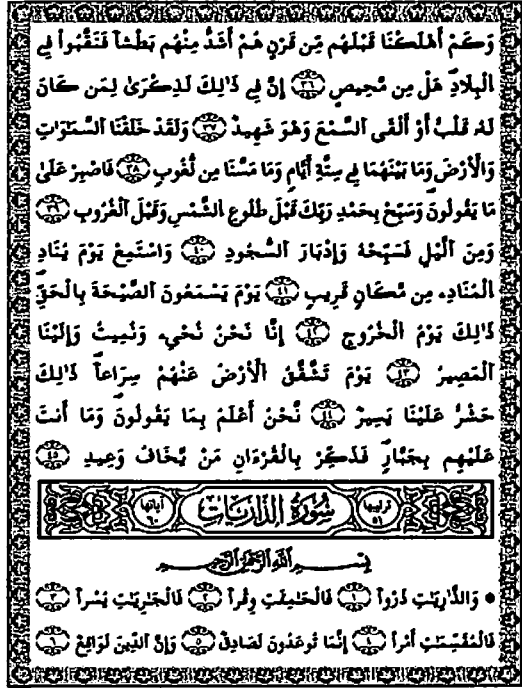 وَكَمْ أَهْلَكْنَا قَبْلَهُم مِّن قَرْنٍ هُمْ أَشَدُّ مِنْهُم بَطْشًا فَنَقَّبُوا۟ فِي
الْبِلَادِ هَلْ مِن مَّحِيصٍ ٣٦ إِنَّ فِي ذَٰلِكَ لَذِكْرَىٰ لِمَن كَانَ
لَهُ قَلْبٌ أَوْ أَلْقَى السَّمْعَ وَهُوَ شَهِيدٌ ٣٧ وَلَقَدْ خَلَقْنَا السَّمَٰوَٰتِ
وَالْأَرْضَ وَمَا بَيْنَهُمَا فِي سِتَّةِ أَيَّامٍ وَمَا مَسَّنَا مِن لُّغُوبٍ ٣٨ فَاصْبِرْ عَلَىٰ
مَا يَقُولُونَ وَسَبِّحْ بِحَمْدِ رَبِّكَ قَبْلَ طُلُوعِ الشَّمْسِ وَقَبْلَ الْغُرُوبِ ٣٩
وَمِنَ الَّيْلِ فَسَبِّحْهُ وَإِدْبَارَ السُّجُودِ ٤٠ وَاسْتَمِعْ يَوْمَ يُنَادِ
الْمُنَادِۦ مِن مَّكَانٍ قَرِيبٍ ٤١ يَوْمَ يَسْمَعُونَ الصَّيْحَةَ بِالْحَقِّ
ذَٰلِكَ يَوْمُ الْخُرُوجِ ٤٢ إِنَّا نَحْنُ نُحْيِۦ وَنُمِيتُ وَإِلَيْنَا
الْمَصِيرُ ٤٣ يَوْمَ تَشَّقَّقُ الْأَرْضُ عَنْهُمْ سِرَاعًا ذَٰلِكَ
حَشْرٌ عَلَيْنَا يَسِيرٌ ٤٤ نَّحْنُ أَعْلَمُ بِمَا يَقُولُونَ وَمَا أَنتَ
عَلَيْهِم بِجَبَّارٍ فَذَكِّرْ بِالْقُرْءَانِ مَنْ يَّخَافُ وَعِيدِ ٤٥
ترتيبها ٥١ سُورَةُ الذَّارِيَات آياتها ٦٠
بِسْمِ اللَّهِ الرَّحْمَٰنِ الرَّحِيمِ
وَالذَّٰرِيَٰتِ ذَرْوًا ١ فَالْحَٰمِلَٰتِ وِقْرًا ٢ فَالْجَٰرِيَٰتِ يُسْرًا ٣
فَالْمُقَسِّمَٰتِ أَمْرًا ٤ إِنَّمَا تُوعَدُونَ لَصَادِقٌ ٥ وَإِنَّ الدِّينَ لَوَاقِعٌ ٦